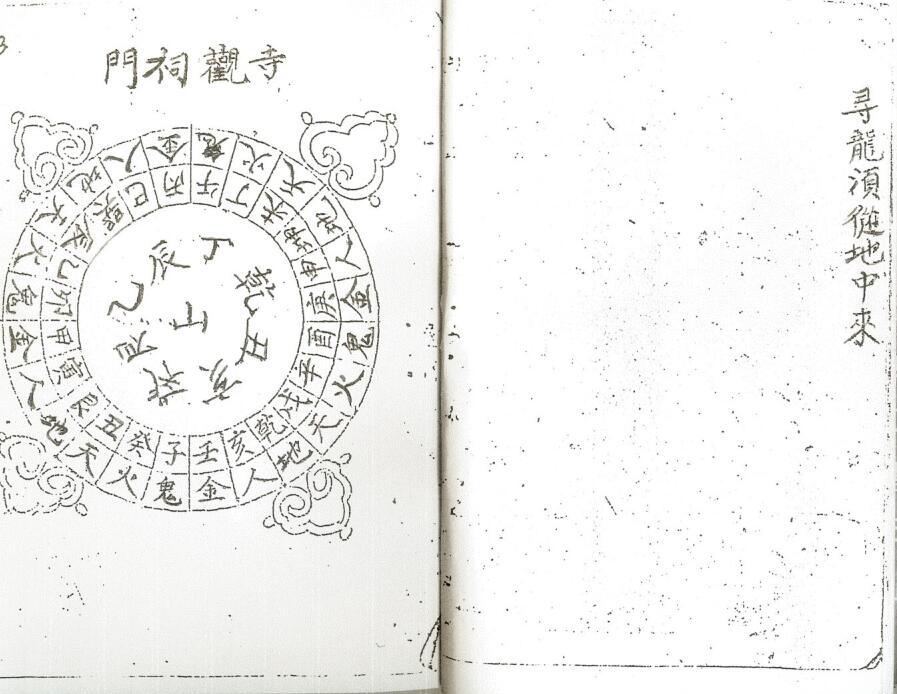 尋龍湏從地中來
寺觀祠門
鬼火天地人金鬼火天地人金鬼火天地人金鬼火天地人金
午丁未坤申庚酉辛戌乾亥壬子癸丑艮寅甲卯乙辰巽巳丙
丑亥乙辰